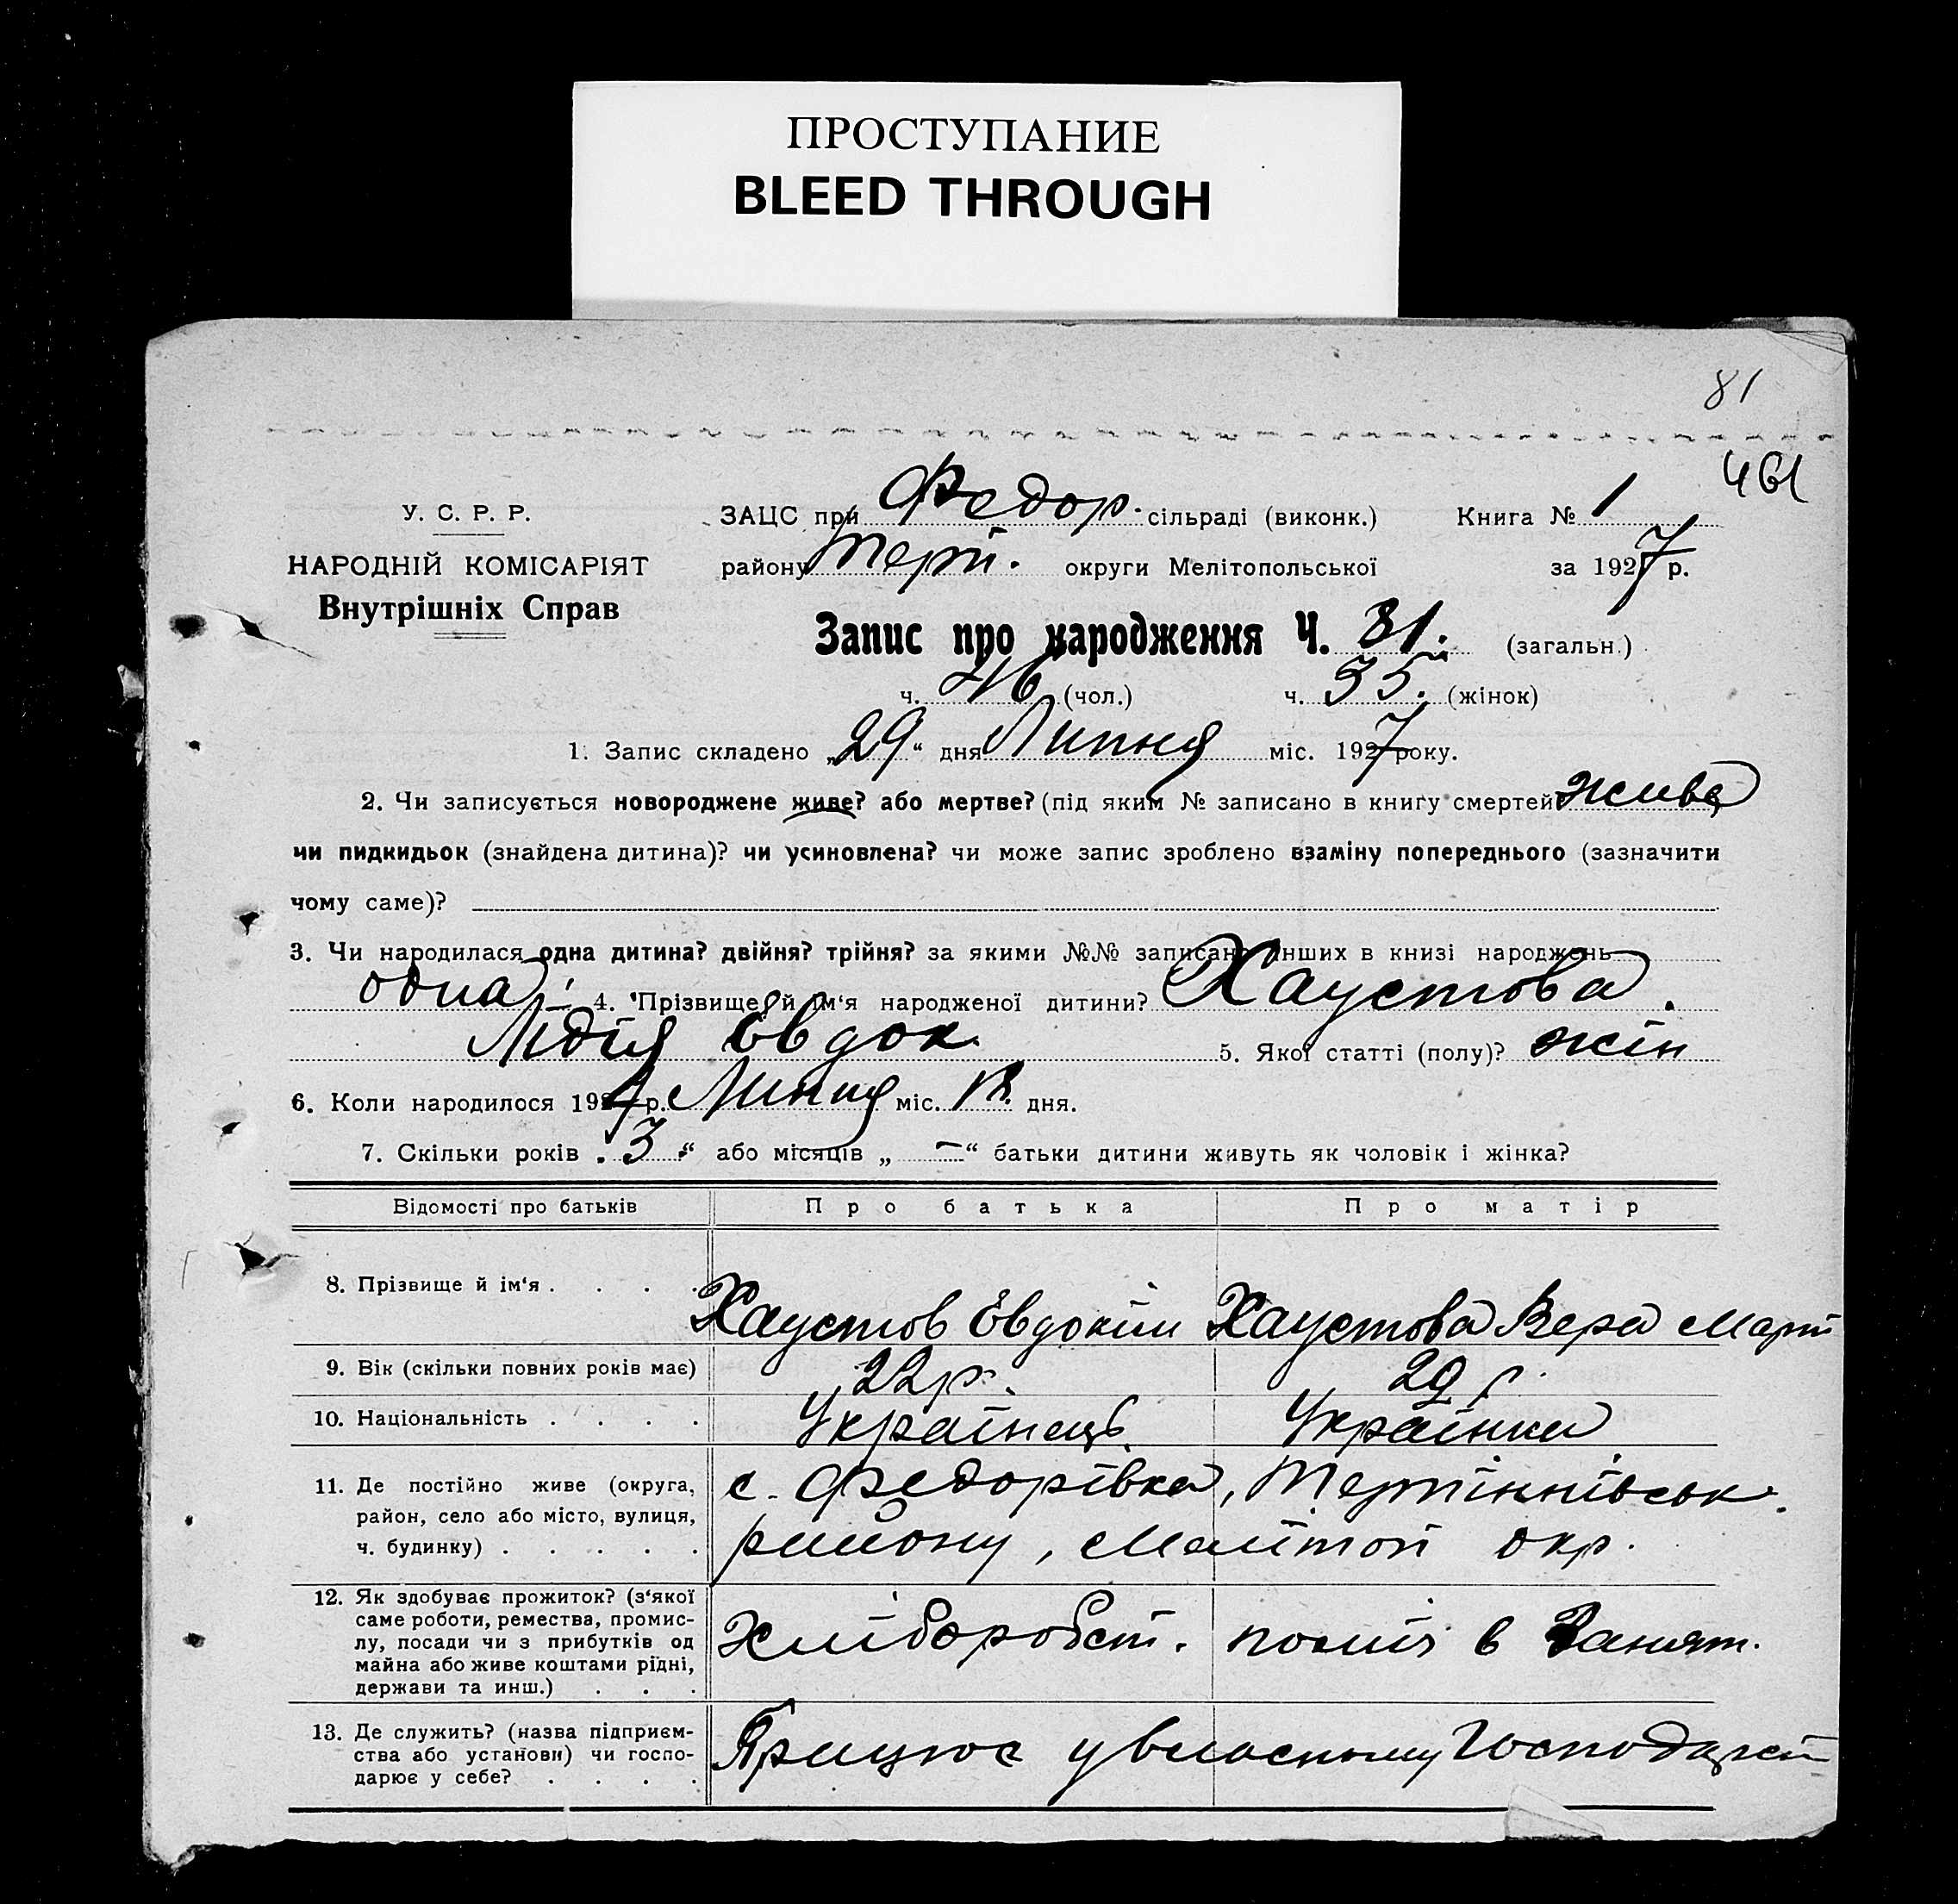 ПРОСТУПАНИЕ
BLEED THROUGH
81
461
У. С. Р. Р.
НАРОДНІЙ КОМІСАРІЯТ
Внутрішніх Справ
ЗАЦС при Федор. сільраді (виконк.) Книга № 1
району Терп. округи Мелітопольської за 1927 р.
Запис про народження Ч. 81. (загальн.)
ч. 46 (чол.) ч. 35. (жінок)
1. Запис складено „29“ дня Липня міс. 1927 року.
2. Чи записується новороджене живе? або мертве? (під яким № записано в книгу смертей жива
чи пидкидьок (знайдена дитина)? чи усиновлена? чи може запис зроблено взаміну попереднього (зазначити
чому саме)?
3. Чи народилася одна дитина? двійня? трійня? за якими №№ записано інших в книзі народжень
одна 4. Прізвище й ім‘я народженої дитини? Хаустова.
Лідія Євдок. 5. Якої статті (полу)? жін
6. Коли народилося 1927 р. Липня міс. 18. дня.
7. Скільки років „3“ або місяців „–“ батьки дитини живуть як чоловік і жінка?
Відомості про батьків Про батька Про матір
8. Прізвище й ім‘я . . . . Хаустов Євдокім Хаустова Вера Март
9. Вік (скільки повних років має) 22 р. 29 р.
10. Національність . . . . Українець Українка
11. Де постійно живе (округа,
район, село або місто, вулиця,
ч. будинку) . . . . .
с. Федорівка, Терпіннівськ.
району, Мелітоп окр.
12. Як здобуває прожиток? (з‘якої
саме роботи, ремества, промис-
лу, посади чи з прибутків од
майна або живе коштами рідні,
держави та инш.) . . .
Хліборобст. поміч в Занят.
13. Де служить? (назва підприєм-
ства або установи) чи госпо-
дарює у себе? . . . .
Працює у власному Господарст